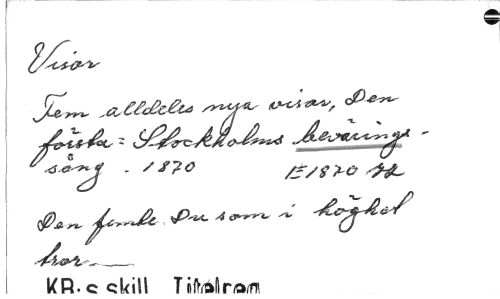 Visor
Fem alldeles nya visor, Den
första = Stockholms bevärings-
sång. 1870 E1870 72
Den femte. Du som i höghet
tror
KB:s skill. Titelreg